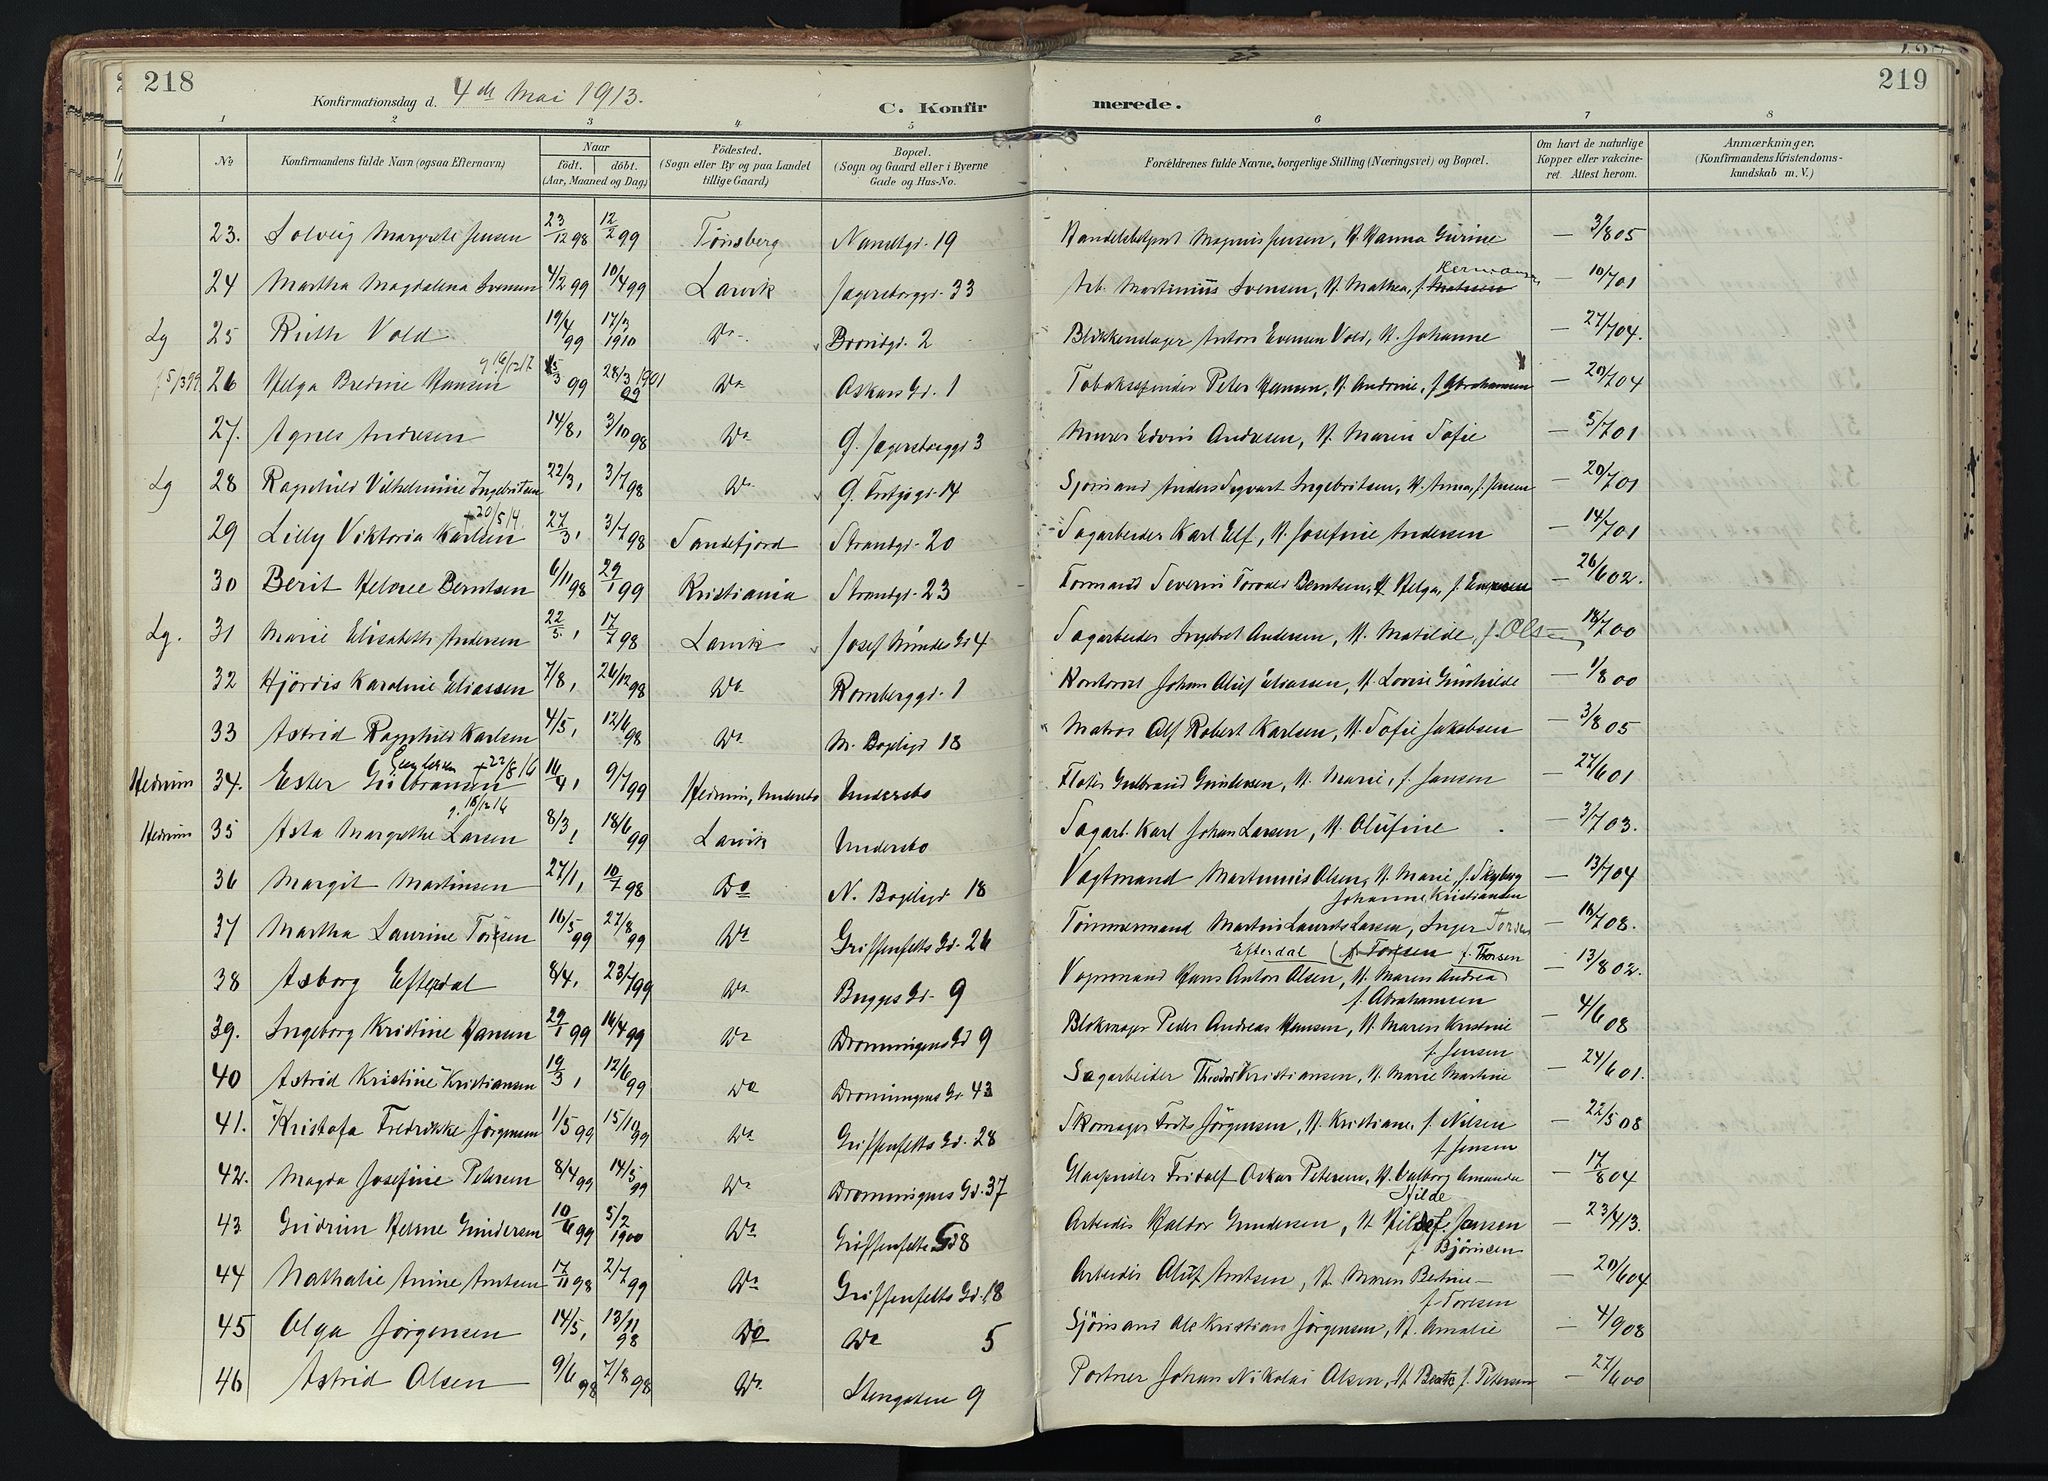 218
Konfirmationsdag d. 4de Mai 1913.
C. Konfirmerede.
219
1 2 3 4 5 6 7 8
No. Konfirmandens fulde Navn (ogsaa Efternavn) Naar født. døbt. (Aar, Maaned og Dag) Fødested. (Sogn eller By og paa Landet tillige Gaard) Bopæl. (Sogn og Gaard eller i Byerne Gade og Hus-No. Forældrenes fulde Navne, borgerlige Stilling (Næringsvei) og Bopæl. Om havt de naturlige Kopper eller vakcineret. Attest herom. Anmærkninger. (Konfirmandens Kristendomskundskab m. V.)
23. Solveig Margrete Jensen 23/12 98 12/2 99 Tönsberg 19 Magnus Jensen, H. Hanna Gurine — 3/8 05
24 Martha Magdalena Svensen 4/2 99 10/4 99 Larvik Jegersborggd. 33 Arb. Martinius Svensen, H. Mathea, f. Hermansen — 10/7 01
Lg 25 Ruth Vold 19/4 99 17/3 1910 Do 2 Blikkenslager Anton Evensen Vold, H. Johanne — 27/7 04.
f 5/3 99 26 Helga Bredine Hansen g. 16/12 17 5/3 99 28/3 1901 Do Oskars Gd. 1 Tobaksspinder Peter Hansen, H. Andrine, f. Abrahamsen — 20/7 04
27. Agnes Andresen 14/8, 3/10 98 Do G. Jegersborggd 3 Murer Edvin Andresen, H. Maren Sofie — 5/7 01
Lg 28 Ragnhild Vilhelmine Ingebritsen 22/3, 3/7 98 Do 14 Sjömand Anders Sigvart Ingebritsen, H. Anna, f. Jensen — 20/7 01
29 Lilly Viktoria Karlsen + 20/5 14. 27/3, 3/7 98 Sandefjord Strandgd. 20 Sagarbeider Karl Elf, H. Josefine Andersen — 14/7 01
30 Berit Helnee Berntsen 6/11 98 29/1 99 Kristiania Strandgd. 23 Formand Severin Torvald Berntsen, H. Helga, f. — 26/6 02.
Lg. 31 Marie Elisabeth Andersen 22/5, 17/7 98 Larvik Josef Mundes Gd 4 Sagarbeider Ingbret Andersen, H. Matilde, f. Ols— 18/7 00
32 Hjördis Karoline Eliassen 7/8, 26/12 98 Do Romberggd. 1 Kontorist Johan Oluf Eliassen, H. Lovise Gunhilde — 1/8 00
33 Astrid Ragnhild Karlsen 4/5, 12/6 98 Do N. Bøgeligd 18 Matros Alf Robert Karlsen, H. Sofie Jakobsen — 3/8 05
Hedrum 34. Ester Gulbransen Gundersen + 22/8 16 16/4, 9/7 99 Hedrum, Undersbo Undersbo Fløter Gulbrand Gundersen, H. Marie, f. Jansen — 27/6 01
Hedrum 35 Asta Margrethe Larsen g. 18/12 16 8/3, 18/6 99 Larvik Undersbo Sagarb. Karl Johan Larsen, H. Olufine — 3/7 03.
36 Margit Martinsen 27/1, 10/7 98 Do N. Bøgeligd 18 Vagtmand Martinius Olsen, H. Marie, f. Skyberg — 13/7 04
37 Martha Laurine Torsen 16/5 99 27/8 99 Do Griffenfelts Gd. 26 Tömmermand Martin Laurits Larsen, Inger Johanne Kristiansen — 16/7 08.
38 Asborg Efterdal 8/4, 23/7 99 Do Bugges Gd. 9 Vognmand Hans Anton Olsen Efterdal, H. Maren Andrea f. Thorsen — 13/8 02.
39. Ingeborg Kristine Hansen 29/1 99 16/4 99 Do Dronningens Gd 9 Blokmager Peder Andreas Hansen, H. Maren Kristine f. Abrahamsen — 4/6 08
40 Astrid Kristine Kristiansen 19/3, 12/6 99 Do Dronningens Gd. 43 Sagarbeider Theodor Kristiansen, H. Marie Martine f. Jensen — 24/6 01.
41. Kristofa Fredrikke Jörgensen 1/5 99 15/10 99 Do Griffenfelts Gd. 28 Skomager Frits Jörgensen, H. Kristiane, f. Nilsen — 22/5 08
42. Magda Josefine Petersen 8/4 99 14/5 99 Do Dronningens Gd. 37 Glaspuster Fridolf Oskar Petersen, H. Valborg Amanda f. Jensen — 17/8 04
43 Gudrun Helene Gundersen 10/6 99 5/2 1900 Do Griffenfelts Gd 8 Arbeider Haldor Gundersen, H. Hilde f. Jansen — 23/4 13.
44 Nathalie Anine Arntsen 17/11 98 2/7 99 Do Griffenfelts Gd. 18 Arbeider Oluf Arntsen, H. Maren Betine f. Björnsen — 20/6 04
45 Olga Jörgensen 14/5, 13/11 98 Do Do 5 Sjömand Ole Kristian Jörgensen, H. Amalie f. Toresen — 4/9 08
46 Astrid Olsen 9/6 98 7/8 98 Do Stengaten 9 Portner Johan Nikolai Olsen, H. Beate f. Petersen — 27/6 00